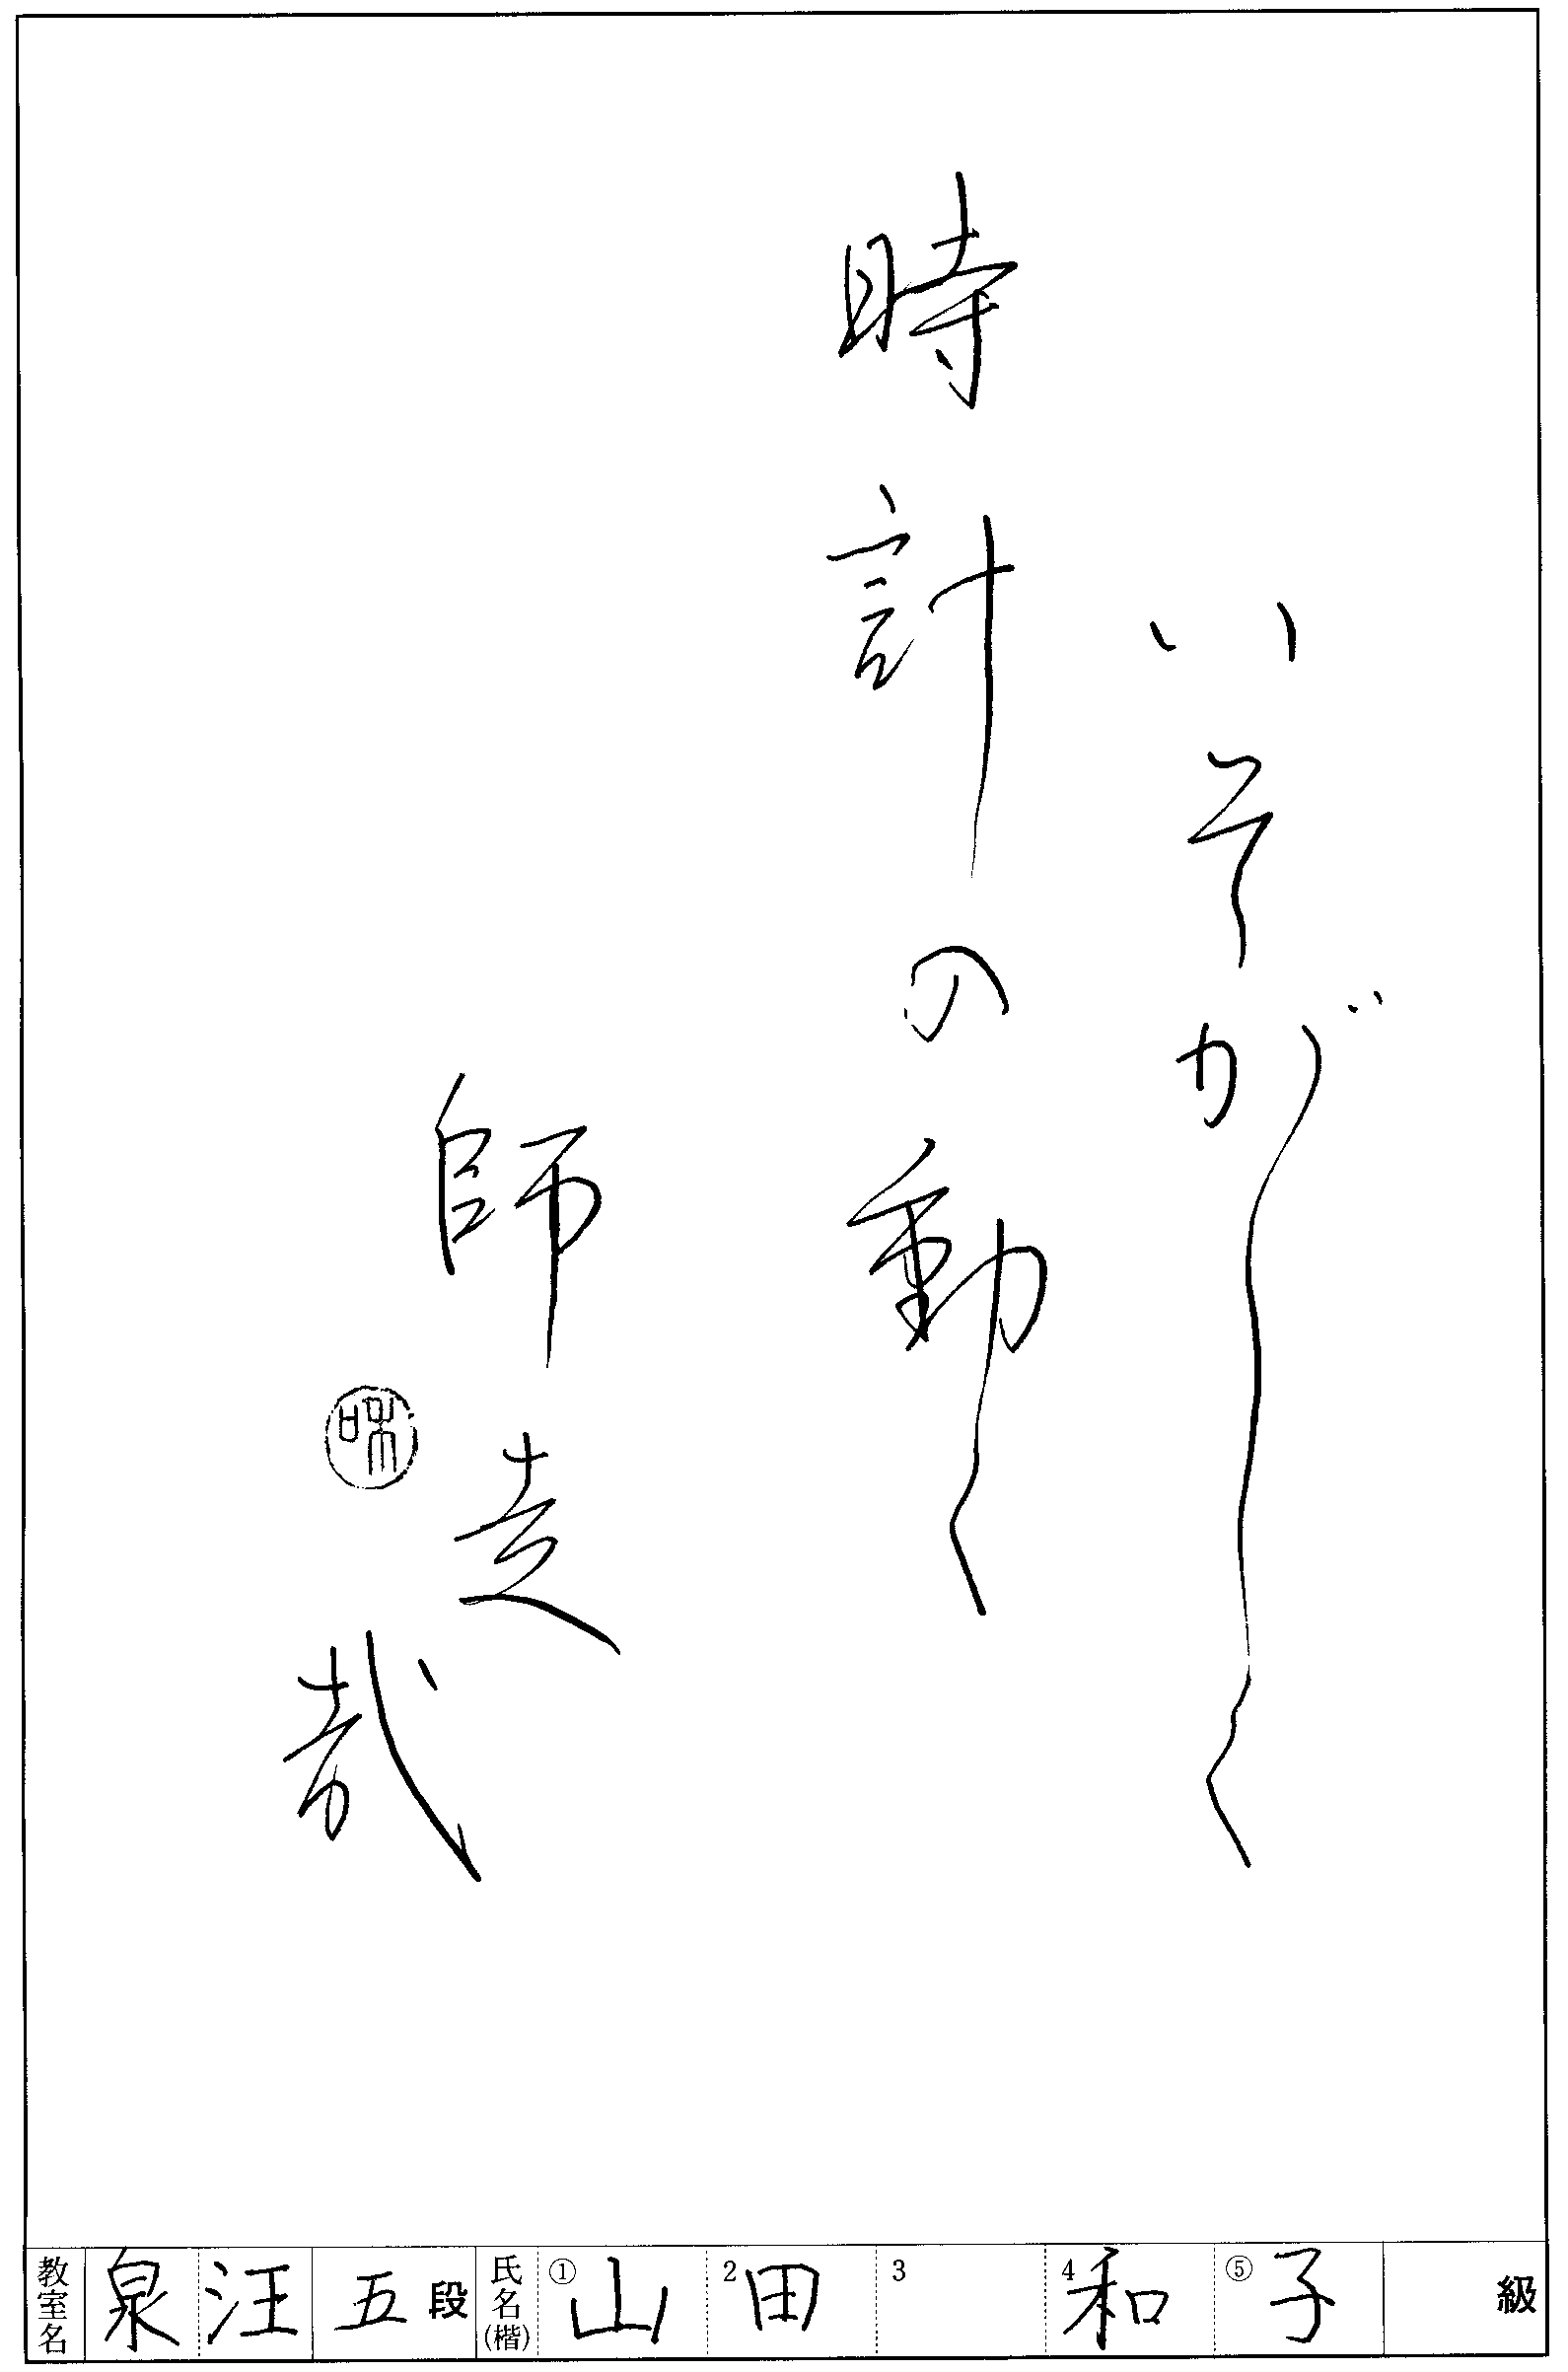 いそがしく
時計の動く
師走哉
和
教室名 泉汪 五段 氏名(楷) ①山 2田 3 4和 ⑤子 級